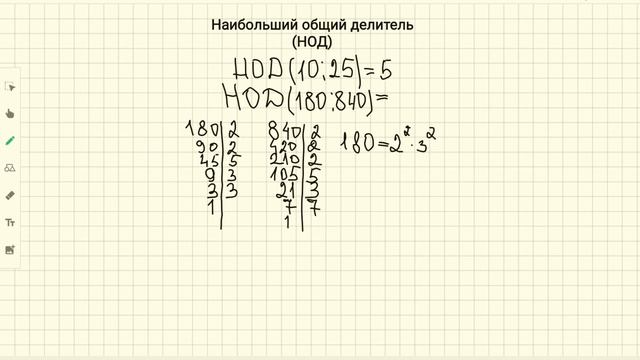 Наибольший общий делитель
(НОД)
НОД(10;25)=5
НОД(180;840)=
180|2
90|2
45|5
9|3
3|3
1|
840|2
420|2
210|2
105|5
21|3
7|7
1|
180=2²·3²
Тт